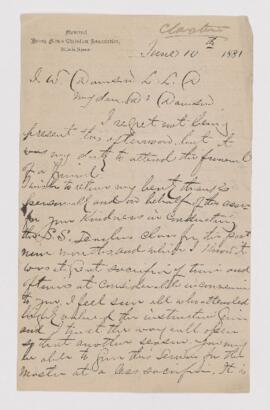 Claxton
Montreal
Young Men's Christian Association,
June 10th 1881
J. W. Dawson L. L. D
My dear Dr Dawson
I regret not being
present this afternoon but it
was my duty to attend the funeral
of a friend.
I wish to return my best thanks
personally and on behalf of the assn
for your kindness in conducting
the S.S. Teachers class for the past
nine months and which I know it
was at great sacrifice of time and
often at considerable inconvenience
to you. I feel sure all who attended
highly valued the instruction given
and I trust the way will open
so that another season you may
be able to give this service for the
Master at a less sacrifice. It is